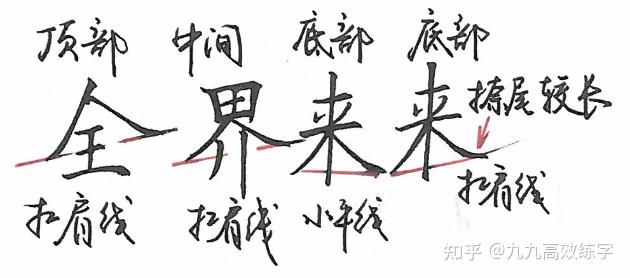 顶部 中间 底部 底部
全 界 来 来 捺尾较长
扛肩线 扛肩线 小平线 扛肩线
知乎 @九九高效练字